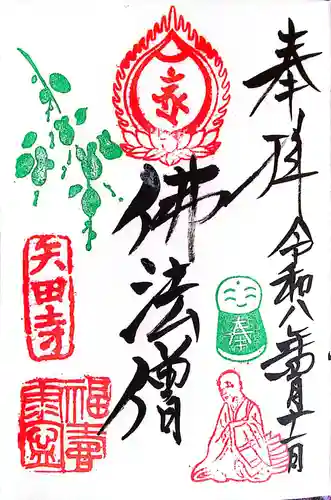 奉拝
令和八年四月十一日
佛法僧
矢田寺
奉